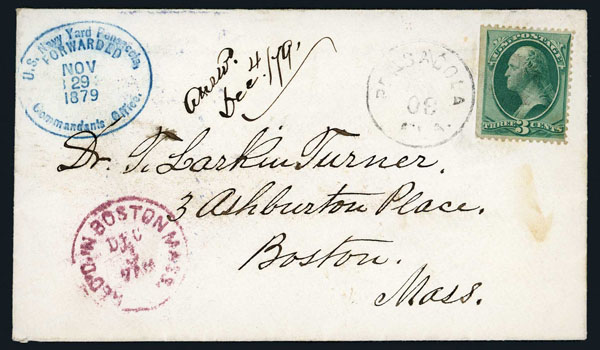 U.S. Navy Yard Pensacola,
FORWARDED
NOV
29
1879
Commandant's Office.
Answ.
Dec. 4/79.
PENSACOLA
U.S. POSTAGE
THREE 3 CENTS
Dr. T. Larkin Turner.
3 Ashburton Place.
Boston.
Mass.
REC'D IN BOSTON MASS.
DEC
3